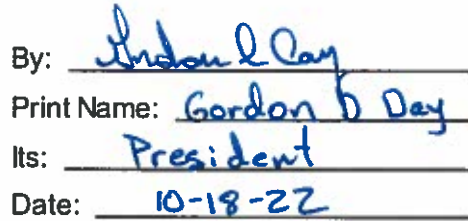 By: Gordon D Day
Print Name: Gordon D Day
Its: President
Date: 10-18-22